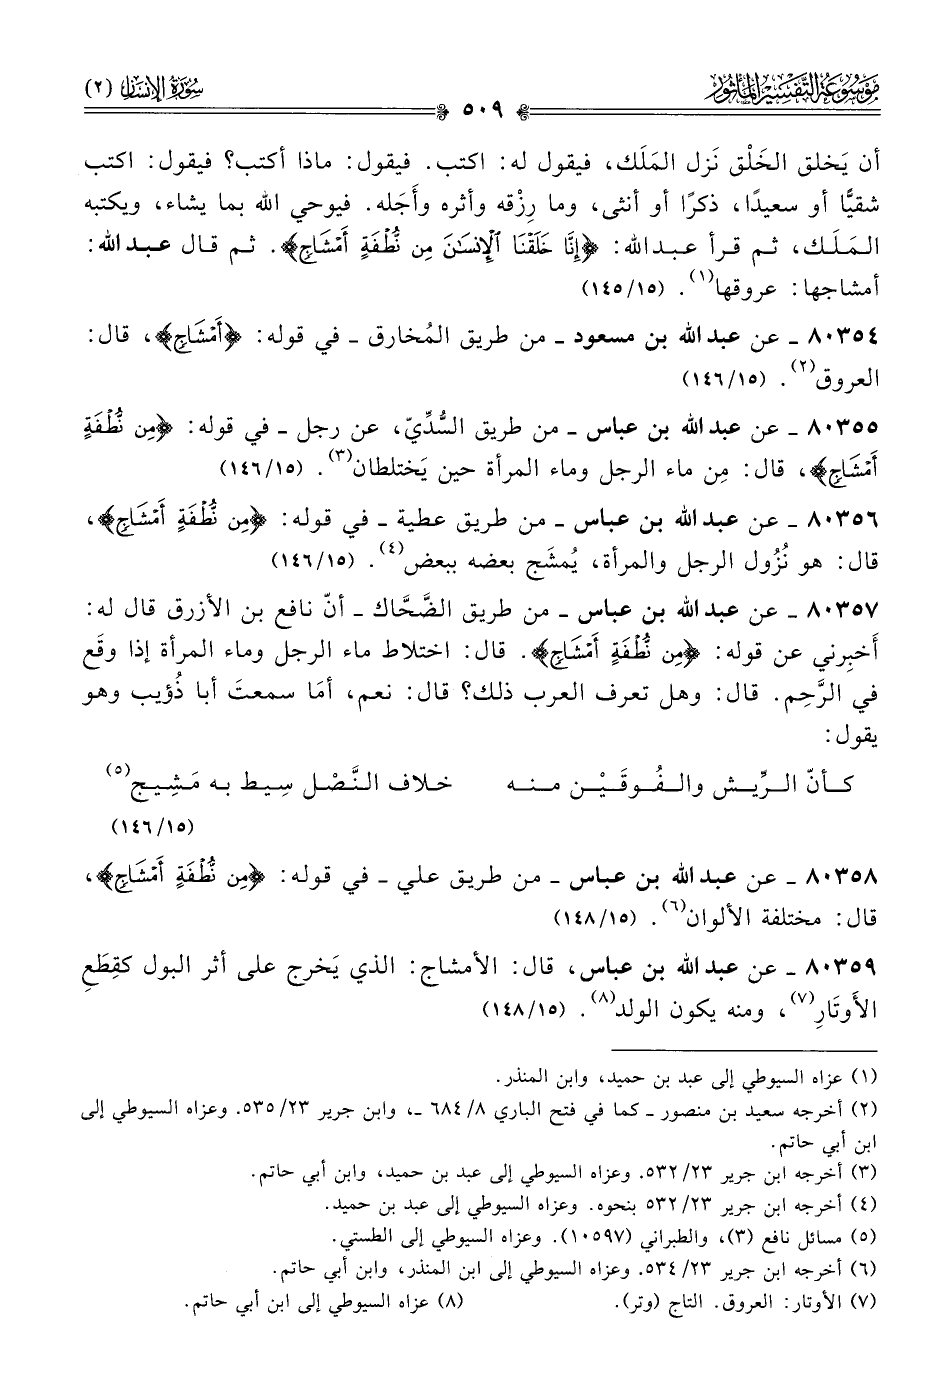 مَوْسُوعَةُ التَّفْسِيرِ المَأْثُورِ
سُورَةُ الإِنسَان (٢)
٥٠٩
أن يَخلق الخَلْق نَزل المَلَك، فيقول له: اكتب. فيقول: ماذا أكتب؟ فيقول: اكتب
شقيًّا أو سعيدًا، ذكرًا أو أنثى، وما رِزْقه وأثره وأَجَله. فيوحي الله بما يشاء، ويكتبه
المَلَك، ثم قرأ عبد الله: ﴿إِنَّا خَلَقْنَا ٱلْإِنسَٰنَ مِن نُّطْفَةٍ أَمْشَاجٍ﴾. ثم قال عبد الله:
أمشاجها: عروقها(١). (١٤٥/١٥)
٨٠٣٥٤ ـ عن عبد الله بن مسعود ـ من طريق المُخارق ـ في قوله: ﴿أَمْشَاجٍ﴾، قال:
العروق(٢). (١٤٦/١٥)
٨٠٣٥٥ ـ عن عبد الله بن عباس ـ من طريق السُّدِّيّ، عن رجل ـ في قوله: ﴿مِن نُّطْفَةٍ
أَمْشَاجٍ﴾، قال: مِن ماء الرجل وماء المرأة حين يَختلطان(٣). (١٤٦/١٥)
٨٠٣٥٦ ـ عن عبد الله بن عباس ـ من طريق عطية ـ في قوله: ﴿مِن نُّطْفَةٍ أَمْشَاجٍ﴾،
قال: هو نُزُول الرجل والمرأة، يُمشَج بعضه ببعض(٤). (١٤٦/١٥)
٨٠٣٥٧ ـ عن عبد الله بن عباس ـ من طريق الضَّحَّاك ـ أنّ نافع بن الأزرق قال له:
أَخبِرني عن قوله: ﴿مِن نُّطْفَةٍ أَمْشَاجٍ﴾. قال: اختلاط ماء الرجل وماء المرأة إذا وقَع
في الرَّحِم. قال: وهل تعرف العرب ذلك؟ قال: نعم، أمَا سمعتَ أبا ذُؤيب وهو
يقول:
كأنّ الرِّيش والفُوقَيْن منه خلاف النَّصْل سِيط به مَشِيج(٥)
(١٤٦/١٥)
٨٠٣٥٨ ـ عن عبد الله بن عباس ـ من طريق علي ـ في قوله: ﴿مِن نُّطْفَةٍ أَمْشَاجٍ﴾،
قال: مختلفة الألوان(٦). (١٤٨/١٥)
٨٠٣٥٩ ـ عن عبد الله بن عباس، قال: الأمشاج: الذي يَخرج على أثر البول كقِطَعِ
الأَوتَارِ(٧)، ومنه يكون الولد(٨). (١٤٨/١٥)
(١) عزاه السيوطي إلى عبد بن حميد، وابن المنذر.
(٢) أخرجه سعيد بن منصور ـ كما في فتح الباري ٨/ ٦٨٤ ـ، وابن جرير ٢٣/ ٥٣٥. وعزاه السيوطي إلى
ابن أبي حاتم.
(٣) أخرجه ابن جرير ٢٣/ ٥٣٢. وعزاه السيوطي إلى عبد بن حميد، وابن أبي حاتم.
(٤) أخرجه ابن جرير ٢٣/ ٥٣٢ بنحوه. وعزاه السيوطي إلى عبد بن حميد.
(٥) مسائل نافع (٣)، والطبراني (١٠٥٩٧). وعزاه السيوطي إلى الطستي.
(٦) أخرجه ابن جرير ٢٣/ ٥٣٤. وعزاه السيوطي إلى ابن المنذر، وابن أبي حاتم.
(٧) الأوتار: العروق. التاج (وتر). (٨) عزاه السيوطي إلى ابن أبي حاتم.